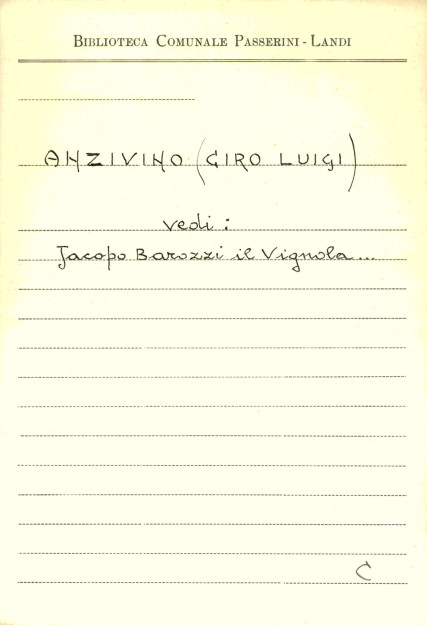 BIBLIOTECA COMUNALE PASSERINI - LANDI
ANZIVINO (CIRO LUIGI)
vedi:
Jacopo Barozzi il Vignola...
C